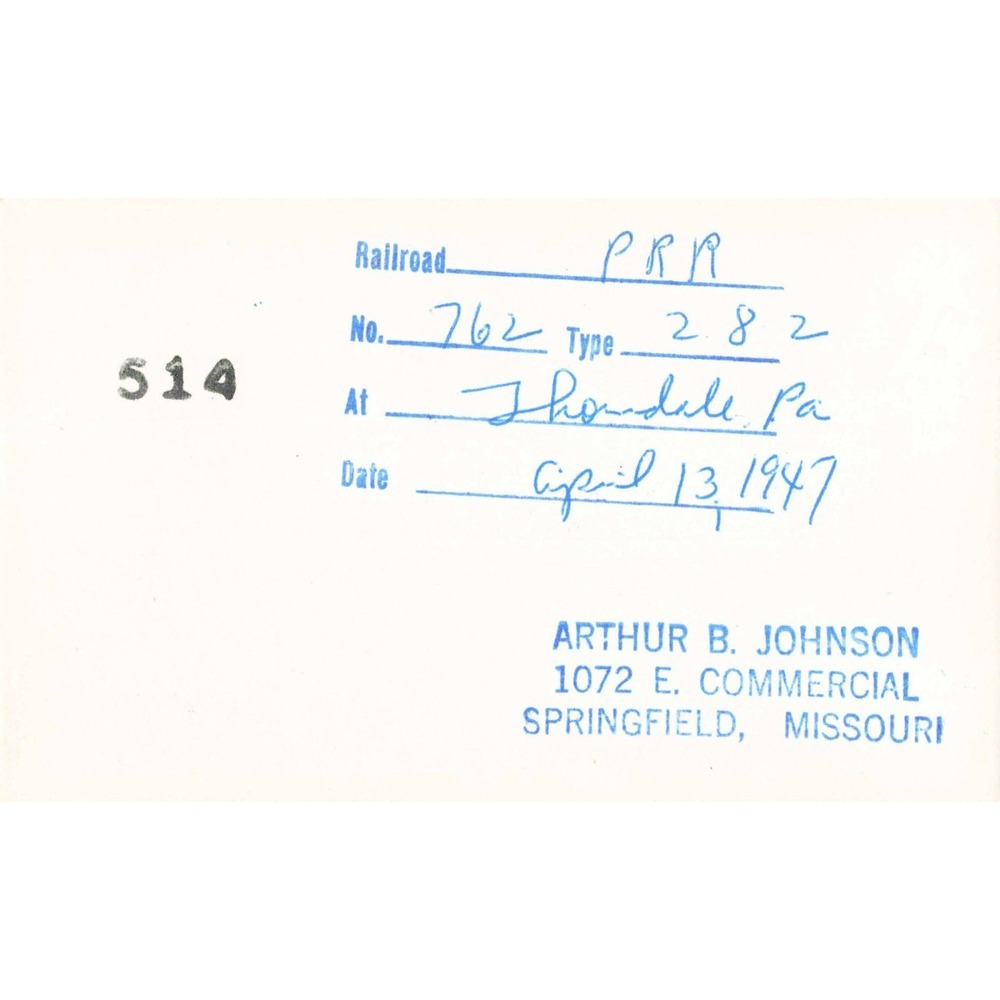 Railroad PRR
No. 762 Type 2 8 2
514
At Thorndale, Pa
Date April 13, 1947
ARTHUR B. JOHNSON
1072 E. COMMERCIAL
SPRINGFIELD, MISSOURI